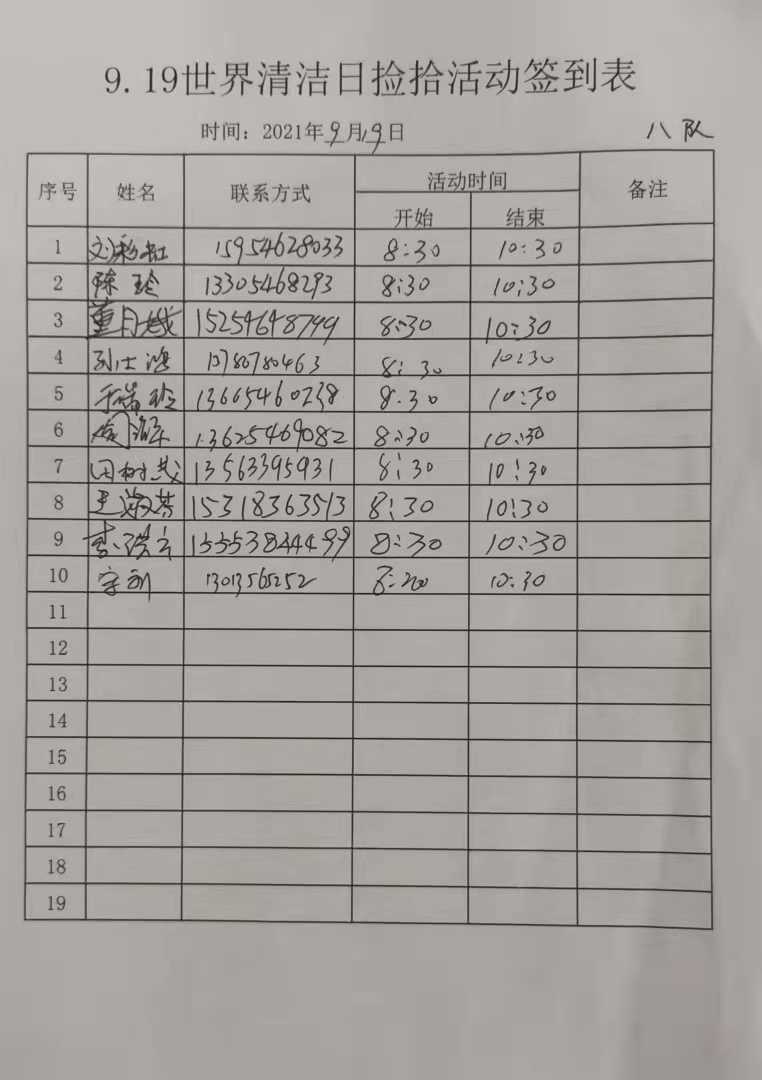 9.19世界清洁日捡拾活动签到表
时间：2021年9月19日 八队
序号 姓名 联系方式 活动时间 备注
开始 结束
1 刘彩虹 15954628033 8:30 10:30
2 陈玲 13305468293 8:30 10:30
3 董月 15254648799 8:30 10:30
4 孙士鸿 13780780463 8:30 10:30
5 于瑞玲 13665460238 8:30 10:30
6 13625469082 8:30 10:30
7 田树 13563395931 8:30 10:30
8 王淑芬 15318363513 8:30 10:30
9 李瑞云 13553844499 8:30 10:30
10 宋 13013565252 8: 10:30
11
12
13
14
15
16
17
18
19